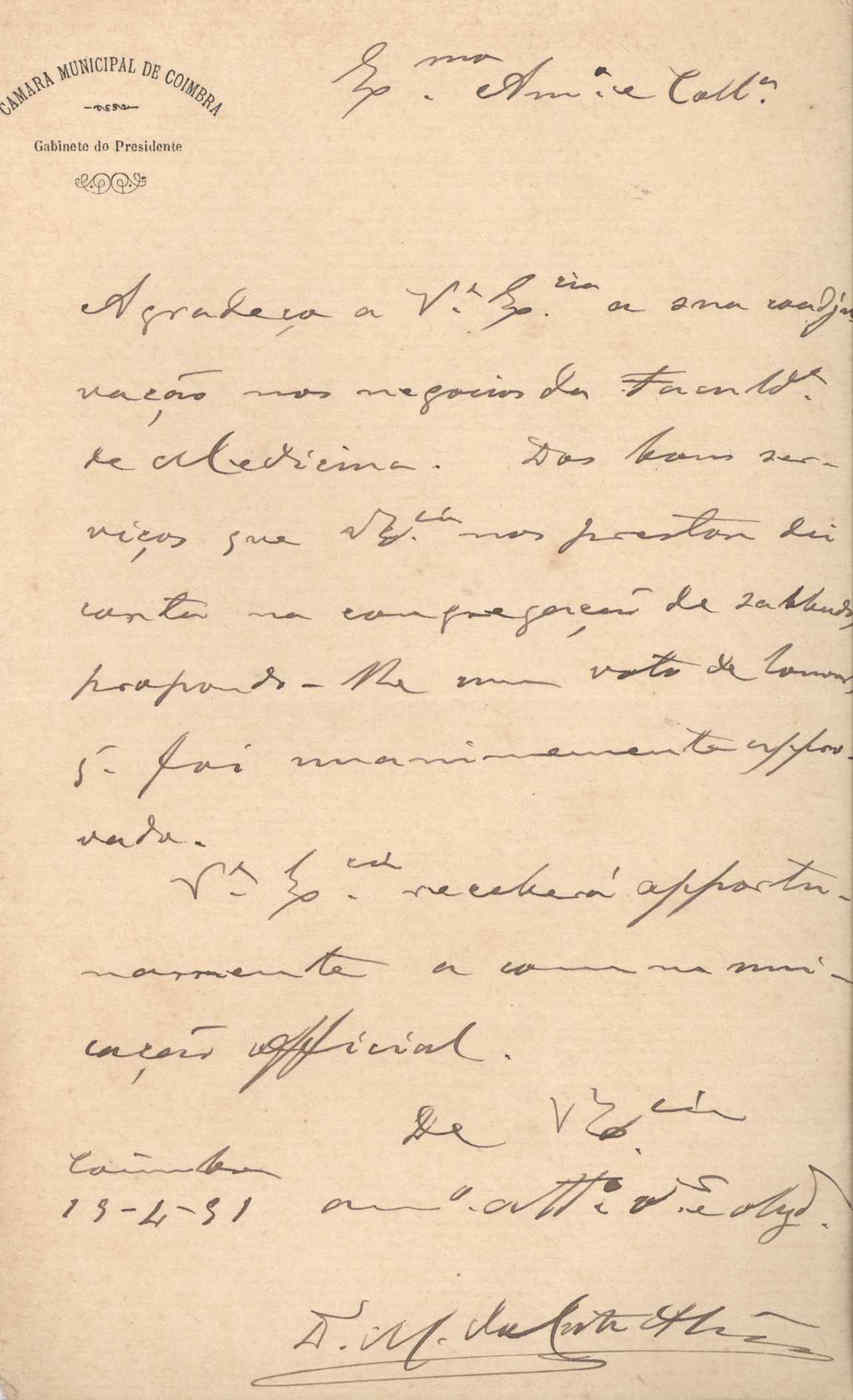 CAMARA MUNICIPAL DE COIMBRA
Gabinete do Presidente
Ex.mo Am.o e Coll.a
Agradeço a V.a Ex.cia a sua coadju
vação nos negocios da Faculd.e
de Medicina. Dos bons ser-
viços que V.Ex.cia nos prestou dei
conta na congregação de sabbado,
propondo-lhe um voto de louvor,
q. foi unanimemente appro-
vado.
V.a Ex.cia receberá opportu-
namente a communi-
cação official.
De V.Ex.cia
Coimbra
19-4-91 am.o att.o v.or e obgd.
D.r M. da Costa Al